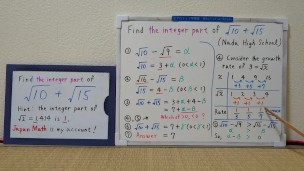 Find the integer part of
√10 + √15
Hint: the integer part of
√2 = 1.414 is 1.
Japan Math is my account!
Find the integer part of √10 + √15
(Nada High School)
① √10 - √9 = α
√10 = 3 + α (0<α<1)
② √16 - √15 = β
√15 = 4 - β (0<β<1)
③ √10 + √15 = 3+α+4-β
= 7 + α - β
⑤
√10 + √15 = 7 +
Answer = 7
④ Consider the growth
rate of y = √x
x 1 4 9 16
√x 1 2 3 4
Rate
√10 - √9 > √16 - √15
α > β
So, α - β > 0